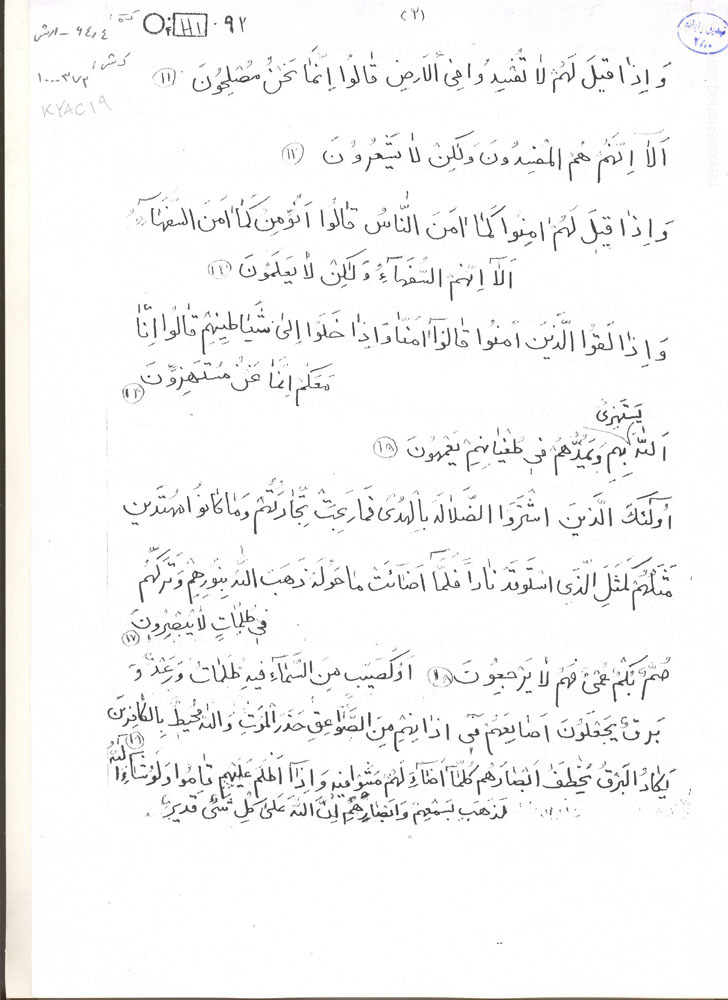 (٢)
٩٢
KYAC19
وَ اِذٰا قیلَ لَهُمْ لاٰ تُفْسِدُوا فِی اْلاَرضِ قٰالُوا اِنَّمٰا نَحْنُ مُصْلِحُونَ (١١)
اَلاٰ اِنَّهُمْ هُمُ المُفْسِدُونَ وَلکِنْ لاٰ یَشْعُرُونَ (١٢)
وَ اِذٰا قیلَ لَهُمْ اٰمِنُوا کَمٰا اٰمَنَ النّٰاسُ قٰالُوا اَنُؤْمِنُ کَمٰا اٰمَنَ السُّفَهٰاءُ
اَلاٰ اِنَّهُمْ السُّفَهٰاءُ وَلٰکِنْ لاٰ یَعلَمُونَ (١٣)
وَ اِذٰا لَقُوا الَّذینَ اٰمَنُوا قٰالوُا اٰمَنّٰا وَاِذٰا خَلَوْا اِلیٰ شَیٰاطینِهِمْ قٰالُوا اِنّٰا
مَعَکُمْ اِنَّمٰا نَحْنُ مُسْتَهْزِؤُنَ (١٤)
یَستَهزِیُ
اَللّٰهُ بِهِم وَیَمُدُّهُمْ فی طُغْیٰانِهِمْ یَعْمَهُونَ (١٥)
اُولٰئِکَ الَّذینَ اشْتَرَوُا الضَّلاٰلَةَ بِالْهُدیٰ فَمٰا رَبِحَتْ تِّجٰارَتُهُمْ وَمٰا کٰانوُا مُهْتَدینَ
مَثَلُهُمْ کَمَثَلِ الَّذِی اسْتَوقَدَ نٰاراً فَلَمّٰا اَضٰائَتْ مٰا حَولَهُ ذَهَبَ اللّٰهُ بِنُورِهِمْ وَتَرَکَهُمْ
فی ظُلُمٰاتٍ لاٰ یُبْصِرُونَ (١٧)
صُمٌّ بُکْمٌ عُمْیٌ فَهُمْ لاٰ یَرْجِعُونَ (١٨) اَوْ کَصَیِّبٍ مِنَ السَّمٰاءِ فیهِ ظُلُمٰاتٌ وَ رَعْدٌ وَ
بَرقٌ یَجعَلُونَ اَصٰابِعَهُمْ فی اٰذٰانِهِمْ مِنَ الصَّوٰاعِقِ حَذَرَ المَوْتِ وَاللّٰهُ مُحیطٌ بِالْکٰافِرینَ (١٩)
یَکٰادُ البَرْقُ یَخْطَفُ اَبْصٰارَهُم کُلَّمٰا اَضٰاءَ لَهُمْ مَشَوْا فیهِ وَ اِذٰا اَظْلَمَ عَلَیْهِم قٰامُوا وَلَوْ شٰاءَ اللّٰهُ
لَذَهَبَ بِسَمْعِهِم وَ اَبْصٰارِهِمْ اِنَّ اللّٰهَ عَلیٰ کُلِّ شَیْءٍ قَدیرٌ